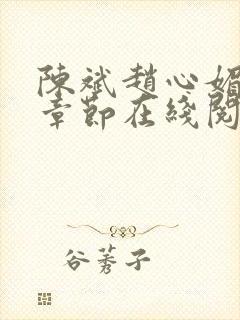 陳斌趙心媚
章節在綫閱
谷莠子